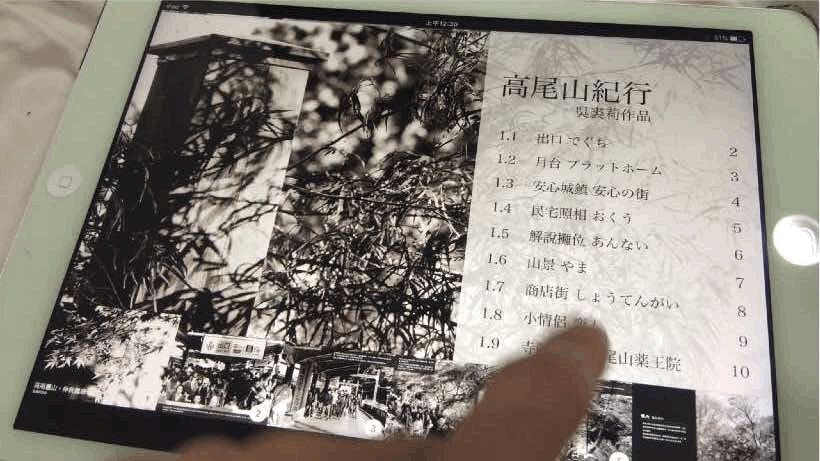 iPad
上午12:39
51%
高尾山紀行
吳裘莉作品
1.1 出口 でぐち 2
1.2 月台 プラットホーム 3
1.3 安心城鎮 安心の街 4
1.4 民宅照相 おくう 5
1.5 解說攤位 あんない 6
1.6 山景 やま 7
1.7 商店街 しょうてんがい 8
1.8 小情侶 9
1.9 寺 尾山薬王院 10
出口
2
3